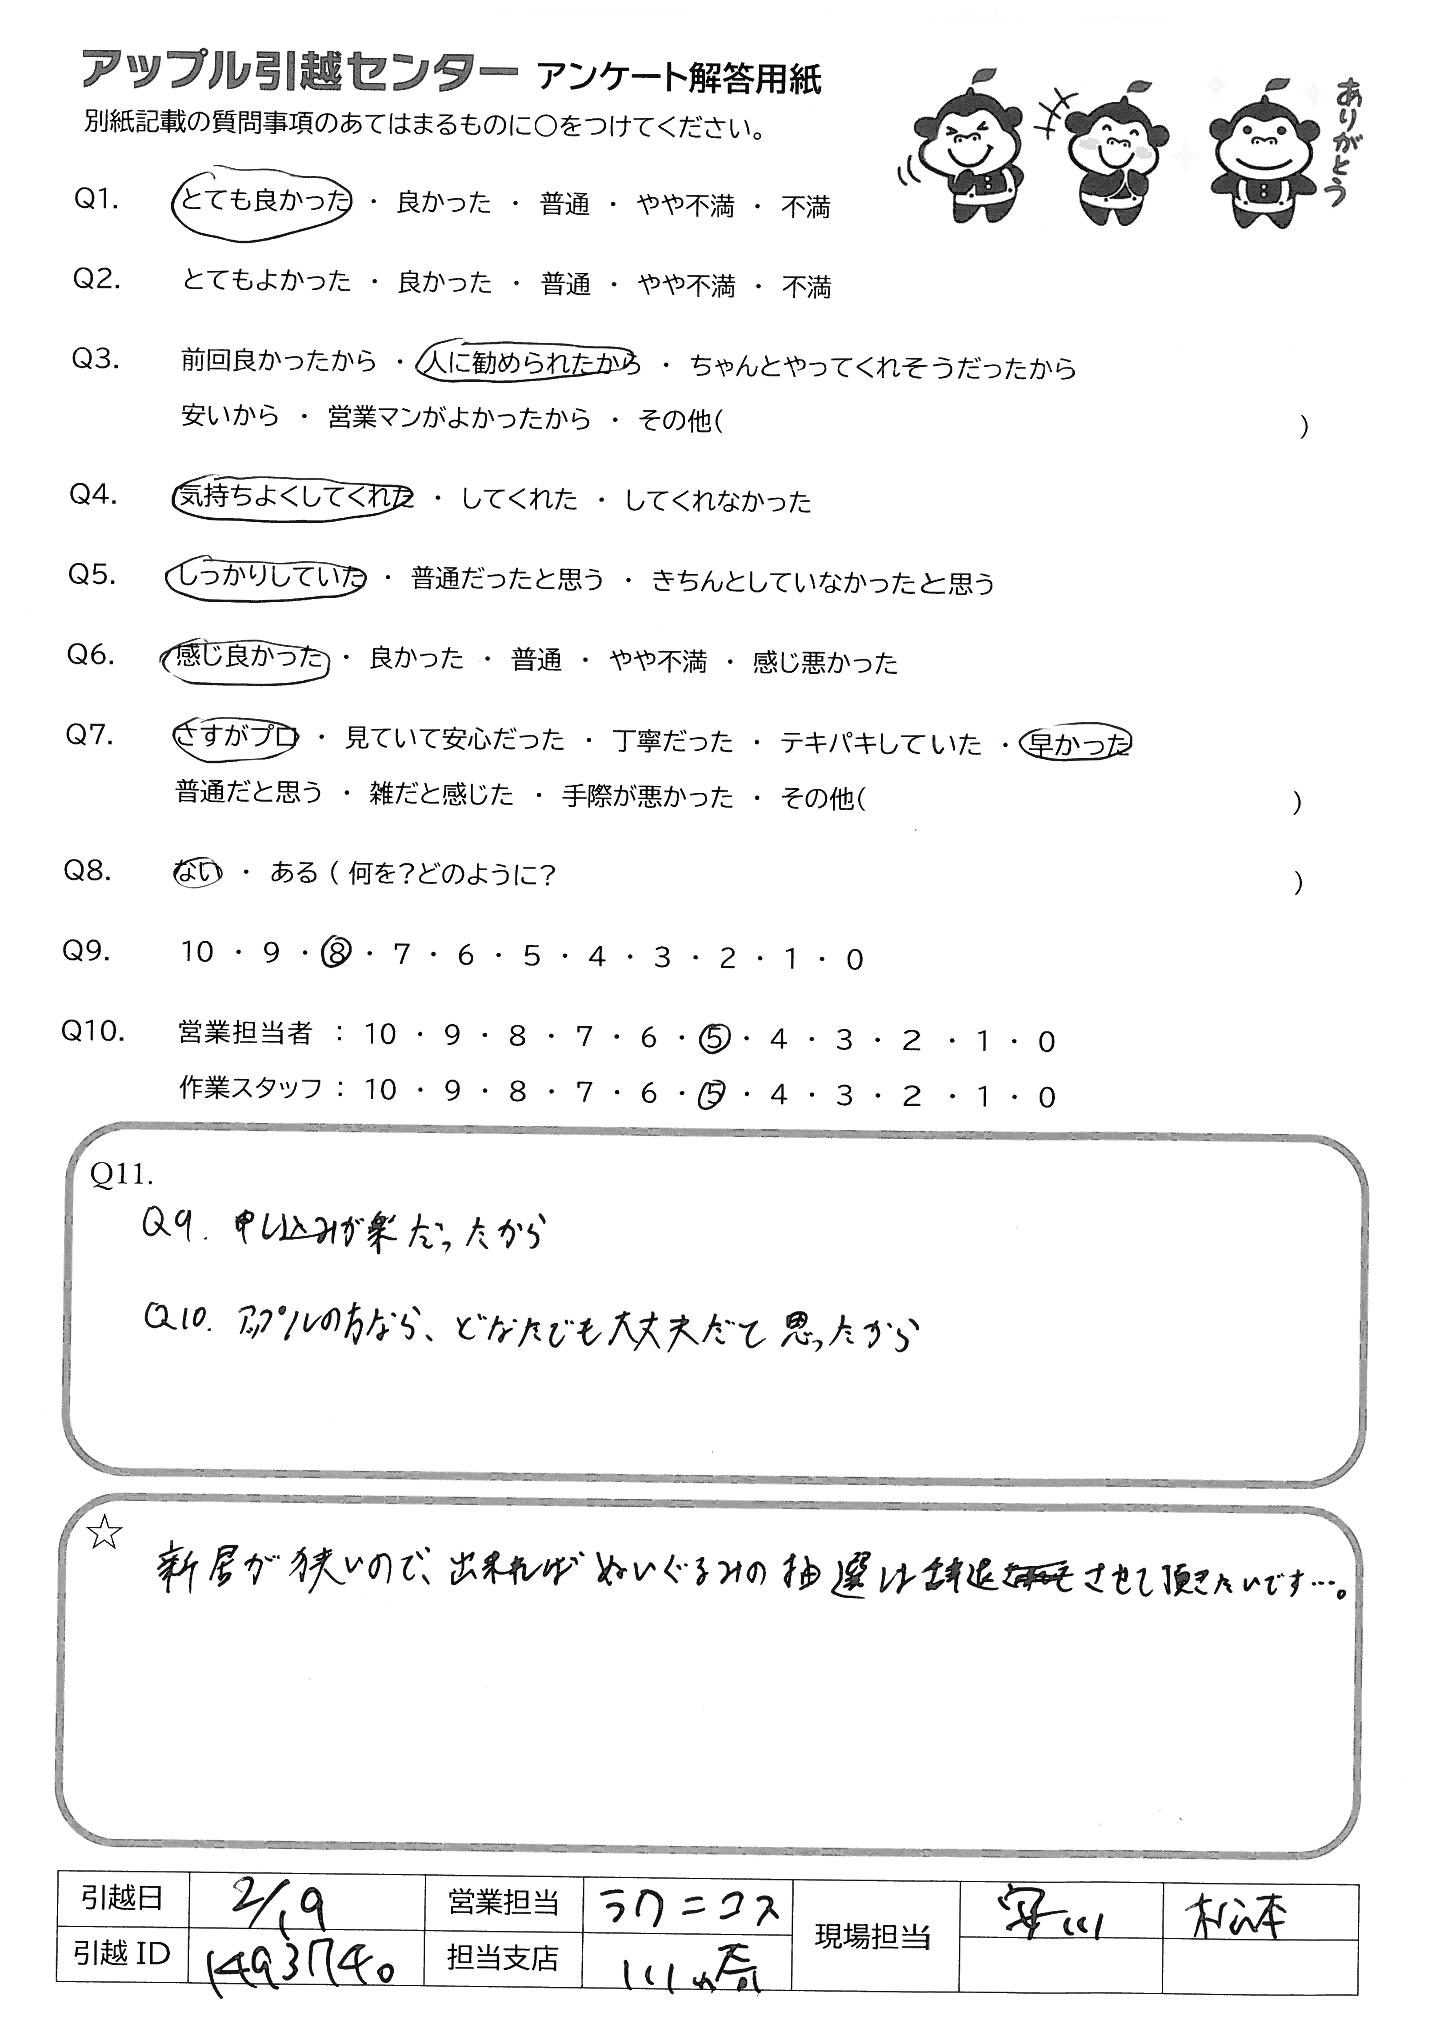 アップル引越センター アンケート解答用紙
ありがとう
別紙記載の質問事項のあてはまるものに○をつけてください。
Q1. とても良かった ・ 良かった ・ 普通 ・ やや不満 ・ 不満
Q2. とてもよかった ・ 良かった ・ 普通 ・ やや不満 ・ 不満
Q3. 前回良かったから ・ 人に勧められたから ・ ちゃんとやってくれそうだったから
安いから ・ 営業マンがよかったから ・ その他( )
Q4. 気持ちよくしてくれた ・ してくれた ・ してくれなかった
Q5. しっかりしていた ・ 普通だったと思う ・ きちんとしていなかったと思う
Q6. 感じ良かった ・ 良かった ・ 普通 ・ やや不満 ・ 感じ悪かった
Q7. さすがプロ ・ 見ていて安心だった ・ 丁寧だった ・ テキパキしていた ・ 早かった
普通だと思う ・ 雑だと感じた ・ 手際が悪かった ・ その他( )
Q8. ない ・ ある ( 何を?どのように? )
Q9. 10 ・ 9 ・ 8 ・ 7 ・ 6 ・ 5 ・ 4 ・ 3 ・ 2 ・ 1 ・ 0
Q10. 営業担当者 : 10 ・ 9 ・ 8 ・ 7 ・ 6 ・ 5 ・ 4 ・ 3 ・ 2 ・ 1 ・ 0
作業スタッフ : 10 ・ 9 ・ 8 ・ 7 ・ 6 ・ 5 ・ 4 ・ 3 ・ 2 ・ 1 ・ 0
Q11.
Q9. 申し込みが楽だったから
Q10. アップルの方なら、どなたでも大丈夫だて思ったから
☆
新居が狭いので、出来ればぬいぐるみの抽選は辞退させて頂きたいです…。
引越日 2/19 営業担当 ラクニコス 現場担当 松本
引越ID 1493740 担当支店